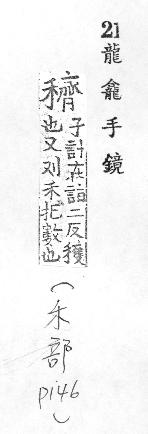 2]龍龕手鏡
穧子計在詣二反穫
也又刈禾把數也
(禾部
p146)